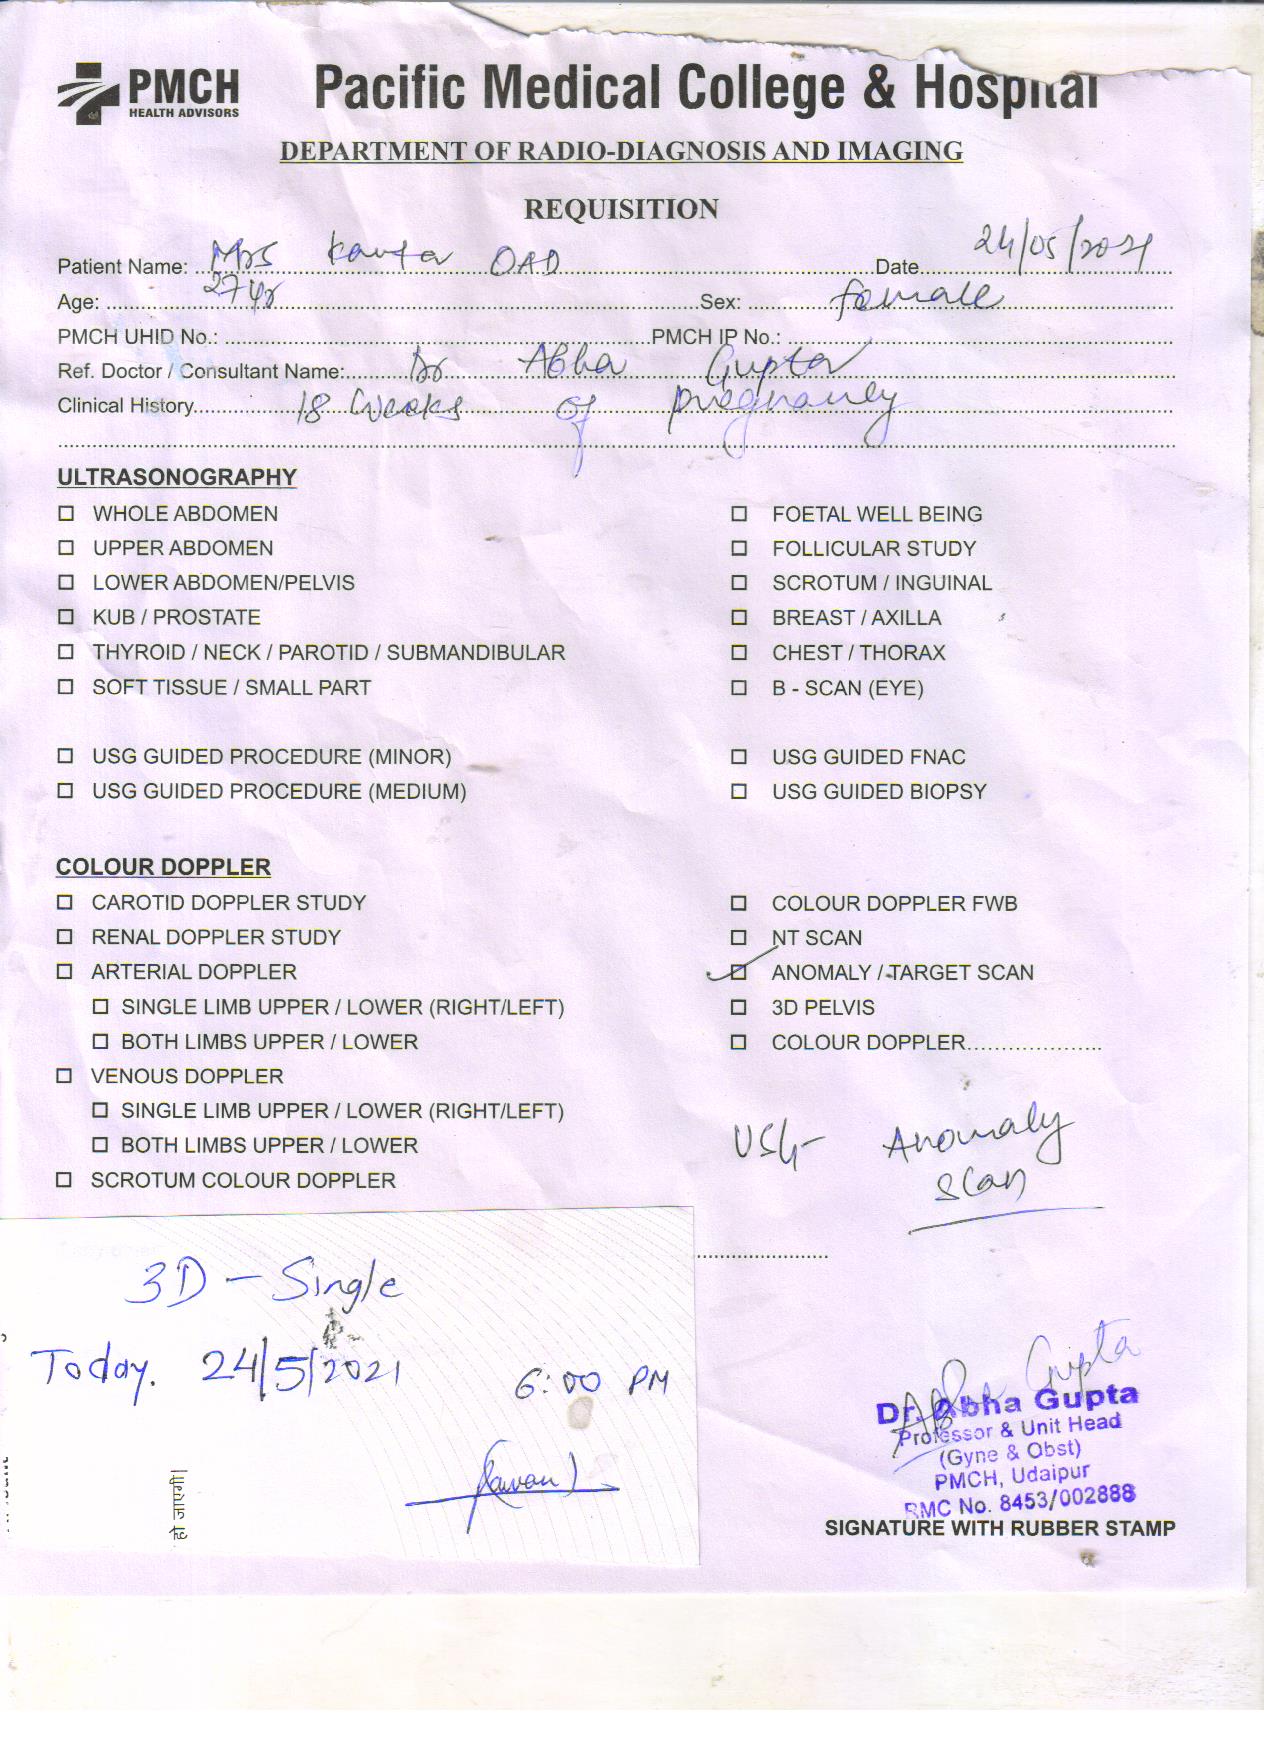 PMCH
HEALTH ADVISORS
Pacific Medical College & Hospital
DEPARTMENT OF RADIO-DIAGNOSIS AND IMAGING
REQUISITION
Patient Name: Mrs Kanta OAD Date 24/05/2021
Age: 27 Yr Sex: female
PMCH UHID No.: PMCH IP No.:
Ref. Doctor / Consultant Name: Dr Abha Gupta
Clinical History 18 Weeks of pregnancy
ULTRASONOGRAPHY
WHOLE ABDOMEN FOETAL WELL BEING
UPPER ABDOMEN FOLLICULAR STUDY
LOWER ABDOMEN/PELVIS SCROTUM / INGUINAL
KUB / PROSTATE BREAST / AXILLA
THYROID / NECK / PAROTID / SUBMANDIBULAR CHEST / THORAX
SOFT TISSUE / SMALL PART B - SCAN (EYE)
USG GUIDED PROCEDURE (MINOR) USG GUIDED FNAC
USG GUIDED PROCEDURE (MEDIUM) USG GUIDED BIOPSY
COLOUR DOPPLER
CAROTID DOPPLER STUDY COLOUR DOPPLER FWB
RENAL DOPPLER STUDY NT SCAN
ARTERIAL DOPPLER ANOMALY / TARGET SCAN
SINGLE LIMB UPPER / LOWER (RIGHT/LEFT) 3D PELVIS
BOTH LIMBS UPPER / LOWER COLOUR DOPPLER
VENOUS DOPPLER
SINGLE LIMB UPPER / LOWER (RIGHT/LEFT)
BOTH LIMBS UPPER / LOWER
SCROTUM COLOUR DOPPLER
USG- Anomaly
Scan
3D - Single
Today. 24/5/2021 6:00 PM
हो जाएगी।
Gupta
Dr. Abha Gupta
Professor & Unit Head
(Gyne & Obst)
PMCH, Udaipur
RMC No. 8453/002888
SIGNATURE WITH RUBBER STAMP